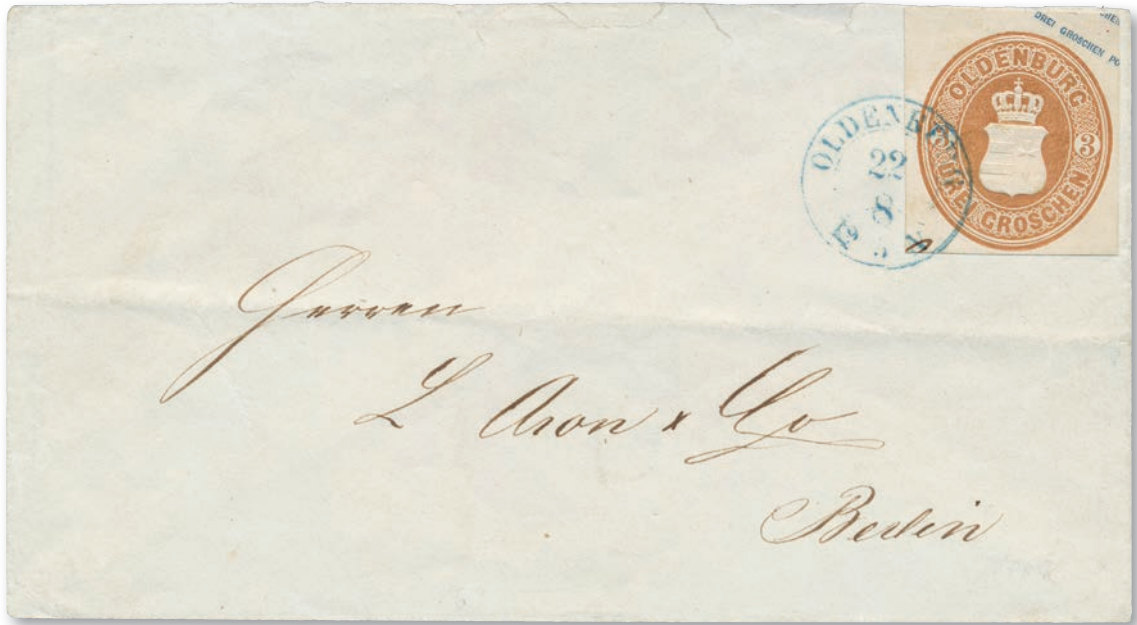 DREI GROSCHEN PO
OLDENBURG
3
DREI GROSCHEN
OLDENBURG
22
8
Herren
L Aron & Co
Berlin